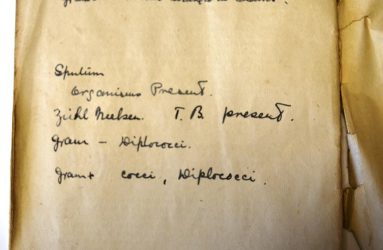 Sputum
Organisms Present.
Ziehl Neelsen. T.B. present.
Gram - Diplococci.
Gram+ cocci, Diplococci.